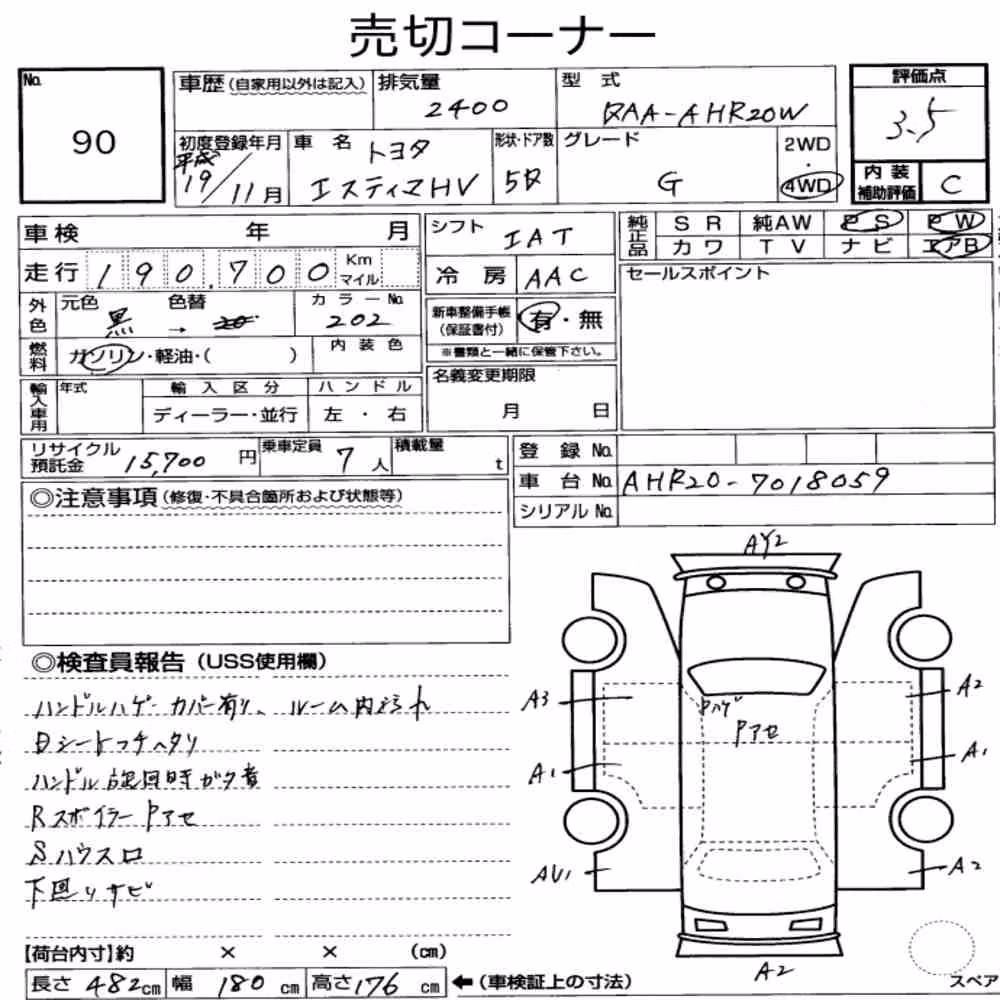 売切コーナー
No.
90
車歴(自家用以外は記入)
排気量
2400
型式
DAA-AHR20W
評価点
3.5
初度登録年月
平成
19/11月
車名
トヨタ
エスティマHV
形状・ドア数
5D
グレード
G
2WD
・
4WD
内装
補助評価
C
車検 年 月
走行 190,700 Km
マイル
外色
元色
黒
色替
→
カラーNo.
202
燃料
ガソリン・軽油・( )
内装色
輸入車用
年式
輸入区分
ディーラー・並行
ハンドル
左・右
シフト
IAT
冷房
AAC
新車整備手帳
(保証書付)
有・無
※書類と一緒に保管下さい。
名義変更期限
月 日
純正品
SR 純AW PS PW
カワ TV ナビ エアB
セールスポイント
リサイクル
預託金
15,700 円
乗車定員
7人
積載量
t
登録No.
車台No. AHR20-7018059
シリアルNo.
◎注意事項(修復・不具合箇所および状態等)
◎検査員報告(USS使用欄)
ハンドルハゲ カバー有り、ルーム内汚れ
Rスポイラー Pアセ
下回りサビ
AY2
A3
A2
Pハゲ
Pアセ
A1
A1
AU1
A2
A2
スペア
【荷台内寸】約 × × (cm)
長さ 482cm 幅 180cm 高さ 176cm ←(車検証上の寸法)